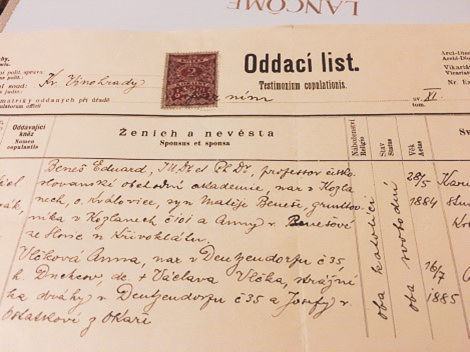 LANCÔME
Oddací list.
Testimonium copulationis.
Kr. Vinohrady
2
ním
sv. XI.
tom.
matriky oddaných při úřadě
Oddávající kněz
Nomen copulantis
Ženich a nevěsta
Sponsus et sponsa
Náboženství
Religio
Stav
Status
Věk
Aetas
Beneš Eduard, JUDr et Ph Dr, professor česko-
slovanské obchodní akademie, nar v Kožla-
nech, o. Kralovice, syn Matěje Beneše, gruntov-
níka v Kožlanech č 101 a Anny r. Benešové
ze Hořic n Křivoklátu.
Vlčková Anna, nar v Deutzendorfu č 35,
h. Duchcov, dc. + Václava Vlčka, strážní-
ha dráhy v Deutzendorfu č 35 a Josefy r.
z Okoří
oba katolíci
oba svobodní
28/5
1884
16/7
1885